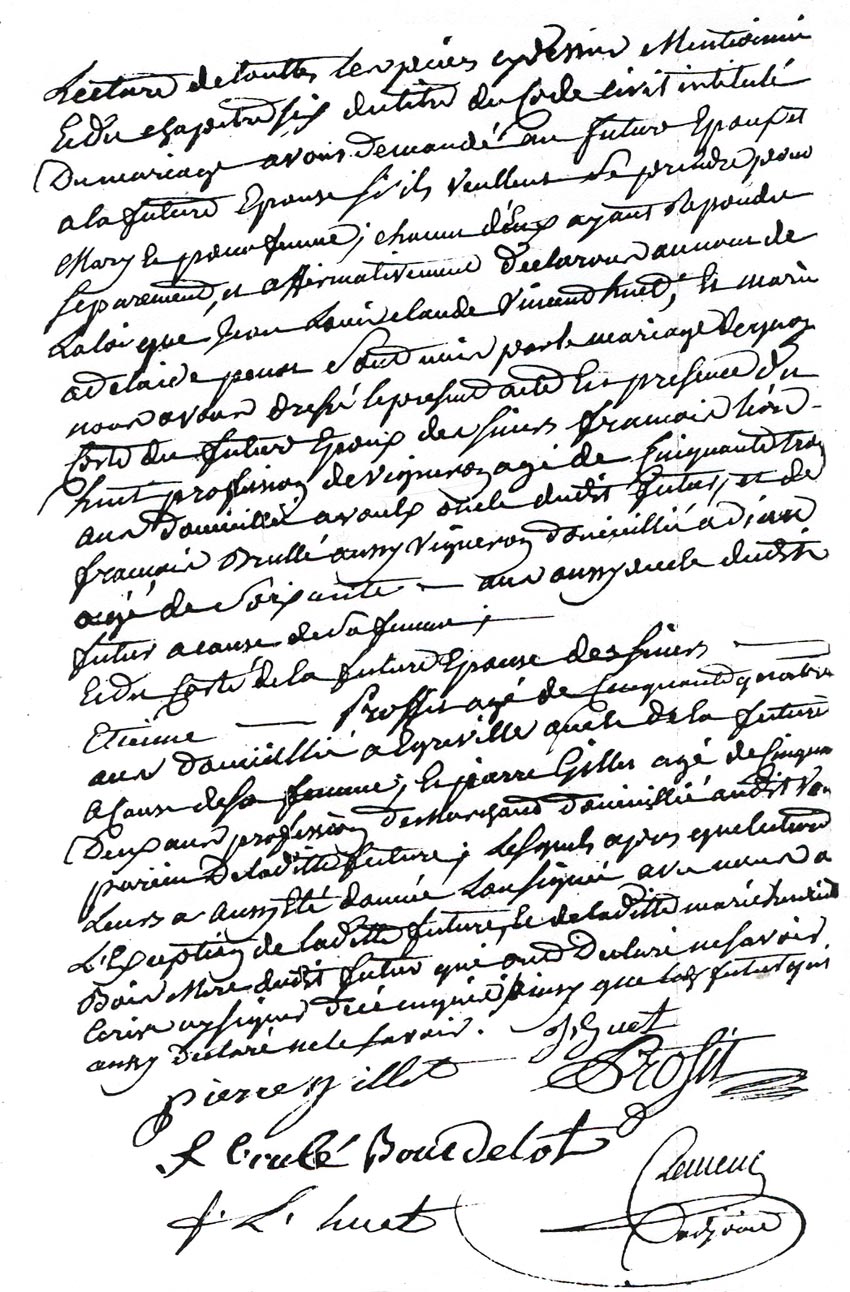 Lecture de toutes les pièces cy dessus Mentionné
Et du chapitre six du titre du Code civil intitulé
Du mariage avons demandé au futur Epoux et
a la future Epouse s'ils veullent se prendre pour
Mary Et pour femme; chacun d'eux ayant Repondu
separement, et affirmativement déclarons au nom de
La loi que Jean Louis claude Vincent huet, Et marie
adelaide sont unis par le mariage
nous avons dressé le present acte En presence du
Costé du futur Epoux des sieurs francois léon
huet profession de vigneron agé de Cinquante trois
ans domicillié a vaulx oncle dudit futur, et de
francois Brullé aussy vigneron domicillié a
agé de soixante — ans aussy oncle dudit
futur a cause de sa femme; —
Et du Costé de la future Epouse des sieurs —
Etienne — Proffit agé de Cinquante quatre
ans domicillié a Egreville oncle de la future
a Cause de sa femme; Et pierre Gillet agé de Cinquante
Deux ans profession de Marchand domicillié audit
parain De laditte future; Lesquels apres que lecture
Leurs a aussy Eté donnée L'ont signée avec nous a
L'Exception de laditte future, Et de laditte marie
Bois Mere dudit futur qui ont Déclaré ne savoir
Ecrire ny signer de ce enquis ainsy que le futur qui
aussy declaré ne le savoir. huet
pierre gillet Profit
f brulé Bourdelot
f. L. huet Clement
adjoint